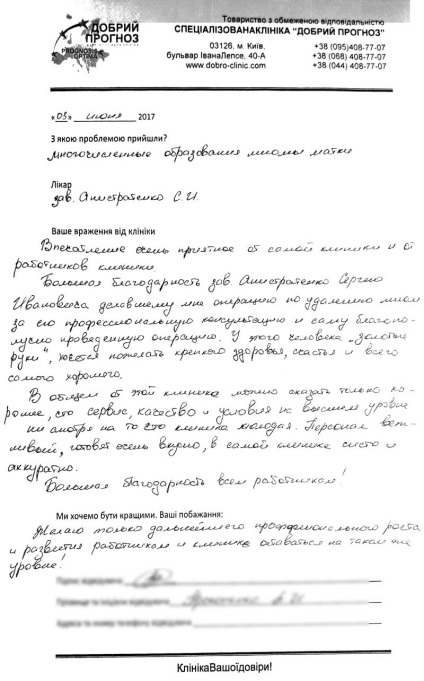 ДОБРИЙ
ПРОГНОЗ
PROGNOSIS
OPTIMA
Товариство з обмеженою відповідальністю
СПЕЦІАЛІЗОВАНАКЛІНІКА "ДОБРИЙ ПРОГНОЗ"
03126, м. Київ,
бульвар ІванаЛепсе, 40-А
www.dobro-clinic.com
+38 (095)408-77-07
+38 (068) 408-77-07
+38 (044) 408-77-07
«03» июня 2017
З якою проблемою прийшли?
многочисленные образования миомы матки
Лікар
зав. Анистратенко С.И.
Ваше враження від клініки
Впечатление очень приятное от самой клиники и от
работников клиники.
Большая благодарность зав. Анистратенко Сергею
Ивановичу делавшему мне операцию по удалению миом
за его профессиональную консультацию и саму благопо-
лучно проведенную операцию. У этого человека „золотые
руки", хочется пожелать крепкого здоровья, счастья и всего
самого хорошего.
В общем от этой клиники можно сказать только хо-
рошее, что сервис, качество и условия на высшем уровне
ни смотря на то что клиника молодая. Персонал веж-
ливый, готовят очень вкусно, в самой клинике чисто и
аккуратно.
Большая благодарность всем работникам!
Ми хочемо бути кращими. Ваші побажання:
Желаю только дальнейшего профессионального роста
и развития работникам и клинике оставаться на таком же
уровне!
КлінікаВашоїдовіри!